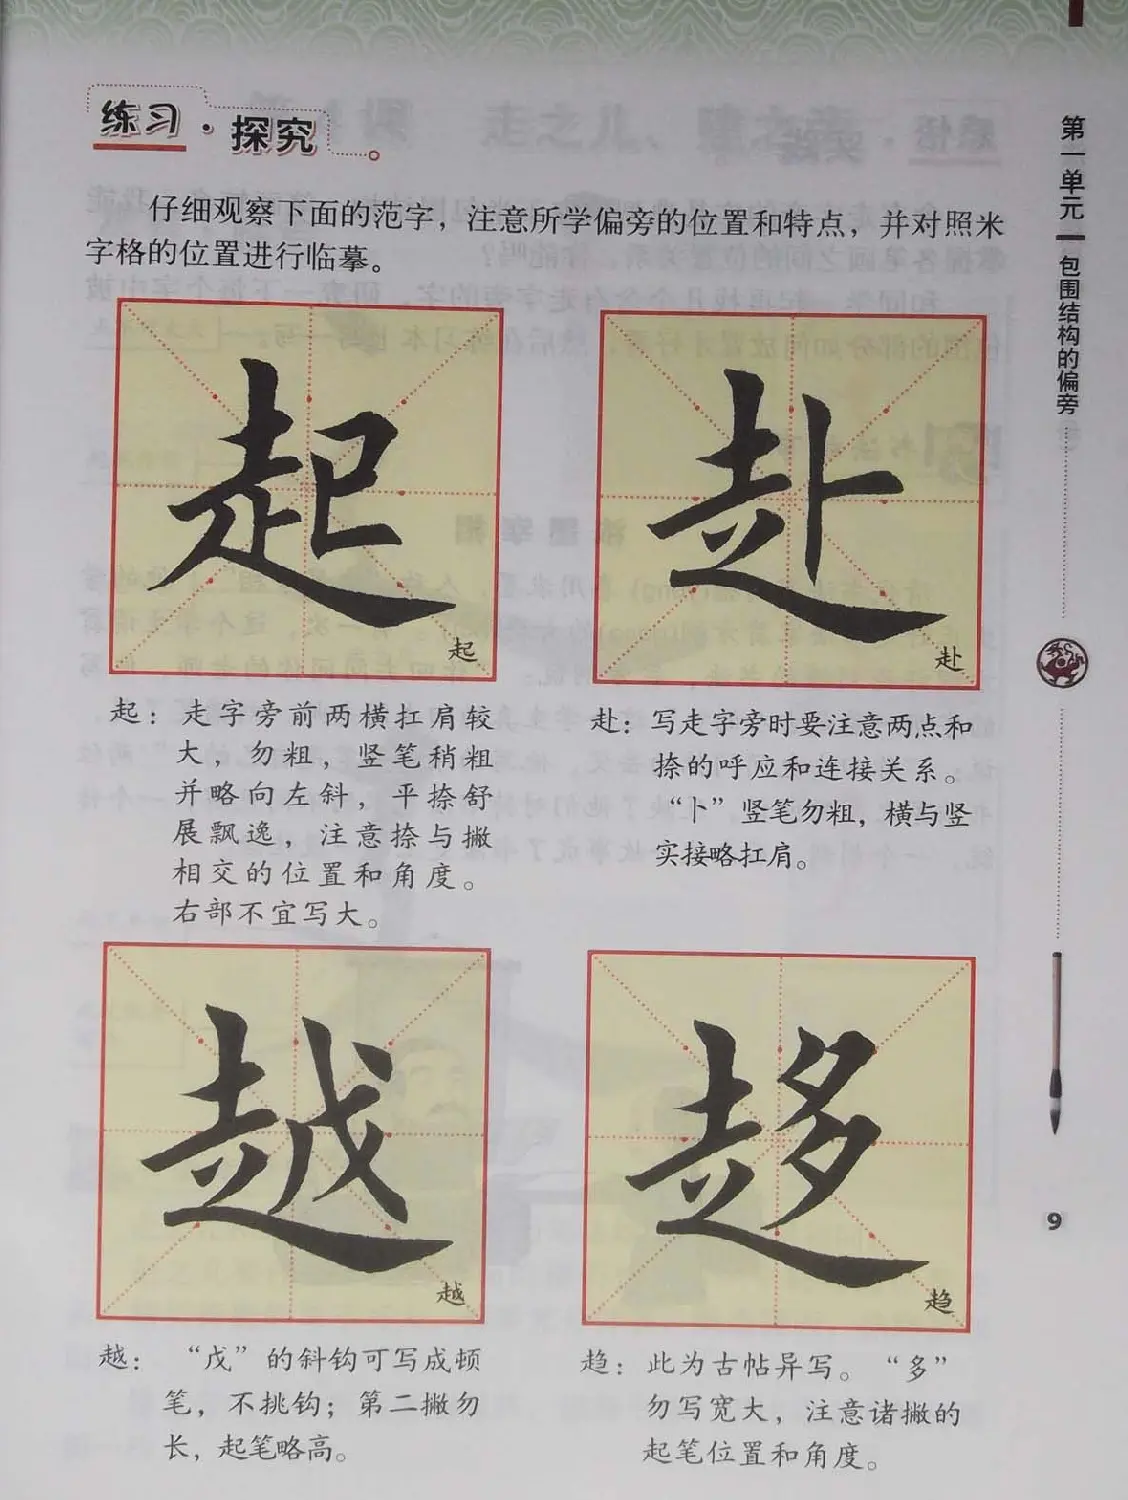 练习·探究
仔细观察下面的范字，注意所学偏旁的位置和特点，并对照米
字格的位置进行临摹。
起
起
起：走字旁前两横扛肩较
大，勿粗，竖笔稍粗
并略向左斜，平捺舒
展飘逸，注意捺与撇
相交的位置和角度。
右部不宜写大。
赴
赴
赴：写走字旁时要注意两点和
捺的呼应和连接关系。
“卜”竖笔勿粗，横与竖
实接略扛肩。
越
越
越：“戊”的斜钩可写成顿
笔，不挑钩；第二撇勿
长，起笔略高。
趍
趋
趋：此为古帖异写。“多”
勿写宽大，注意诸撇的
起笔位置和角度。
第一单元
包围结构的偏旁
9